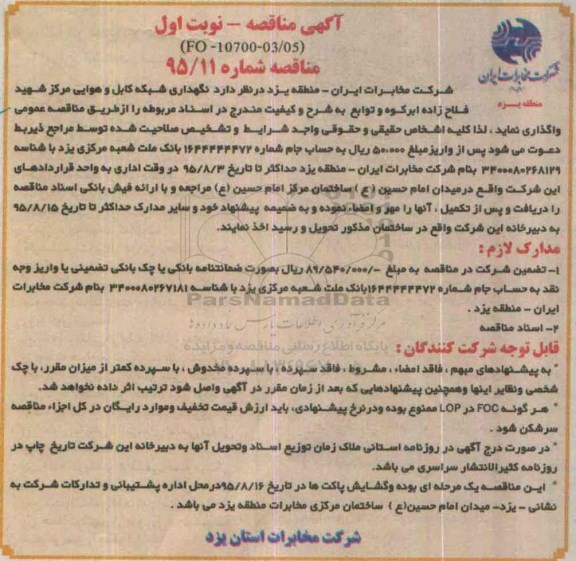 آگهی مناقصه – نوبت اول
(FO -10700-03/05)
مناقصه شماره ۹۵/۱۱
شرکت مخابرات ایران
منطقه یزد
شرکت مخابرات ایران – منطقه یزد درنظر دارد نگهداری شبکه کابل و هوایی مرکز شهید
فلاح زاده ابرکوه و توابع به شرح و کیفیت مندرج در اسناد مربوطه را ازطریق مناقصه عمومی
واگذاری نماید ، لذا کلیه اشخاص حقیقی و حقوقی واجد شرایط و تشخیص صلاحیت شده توسط مراجع ذیربط
دعوت می شود پس از واریزمبلغ ۵۰،۰۰۰ ریال به حساب جام شماره ۱۶۴۴۴۴۴۴۷۲ بانک ملت شعبه مرکزی یزد با شناسه
۳۴۰۰۰۸۰۲۶۸۱۲۹ بنام شرکت مخابرات ایران – منطقه یزد حداکثر تا تاریخ ۹۵/۸/۳ در وقت اداری به واحد قراردادهای
این شرکت واقع درمیدان امام حسین ( ع ) ساختمان مرکز امام حسین (ع) مراجعه و با ارائه فیش بانکی اسناد مناقصه
را دریافت و پس از تکمیل ، آنها را مهر و امضاء نموده و به ضمیمه پیشنهاد خود و سایر مدارک حداکثر تا تاریخ ۹۵/۸/۱۵
به دبیرخانه این شرکت واقع در ساختمان مذکور تحویل و رسید اخذ نمایند.
مدارک لازم :
۱- تضمین شرکت در مناقصه به مبلغ -/۸۹/۵۴۰/۰۰۰ ریال بصورت ضمانتنامه بانکی یا چک بانکی تضمینی یا واریز وجه
نقد به حساب جام شماره ۱۶۴۴۴۴۴۴۷۲بانک ملت شعبه مرکزی یزد با شناسه ۳۴۰۰۰۸۰۲۶۷۱۸۱ بنام شرکت مخابرات
ParsNamadData
ایران – منطقه یزد .
۲- اسناد مناقصه
پایگاه اطلاع رسانی مناقصه و مزایده
قابل توجه شرکت کنندگان :
* به پیشنهادهای مبهم ، فاقد امضاء ، مشروط ، فاقد سپرده ، با سپرده مخدوش ، با سپرده کمتر از میزان مقرر، با چک
شخصی ونظایر اینها وهمچنین پیشنهادهایی که بعد از زمان مقرر در آگهی واصل شود ترتیب اثر داده نخواهد شد.
* هر گونه FOC در LOP ممنوع بوده ودرنرخ پیشنهادی، باید ارزش قیمت تخفیف وموارد رایگان در کل اجزاء مناقصه
سرشکن شود .
* در صورت درج آگهی در روزنامه استانی ملاک زمان توزیع اسناد وتحویل آنها به دبیرخانه این شرکت تاریخ چاپ در
روزنامه کثیرالانتشار سراسری می باشد.
* این مناقصه یک مرحله ای بوده وگشایش پاکت ها در تاریخ ۹۵/۸/۱۶درمحل اداره پشتیبانی و تدارکات شرکت به
نشانی - یزد- میدان امام حسین(ع ) ساختمان مرکزی مخابرات منطقه یزد می باشد .
شرکت مخابرات استان یزد